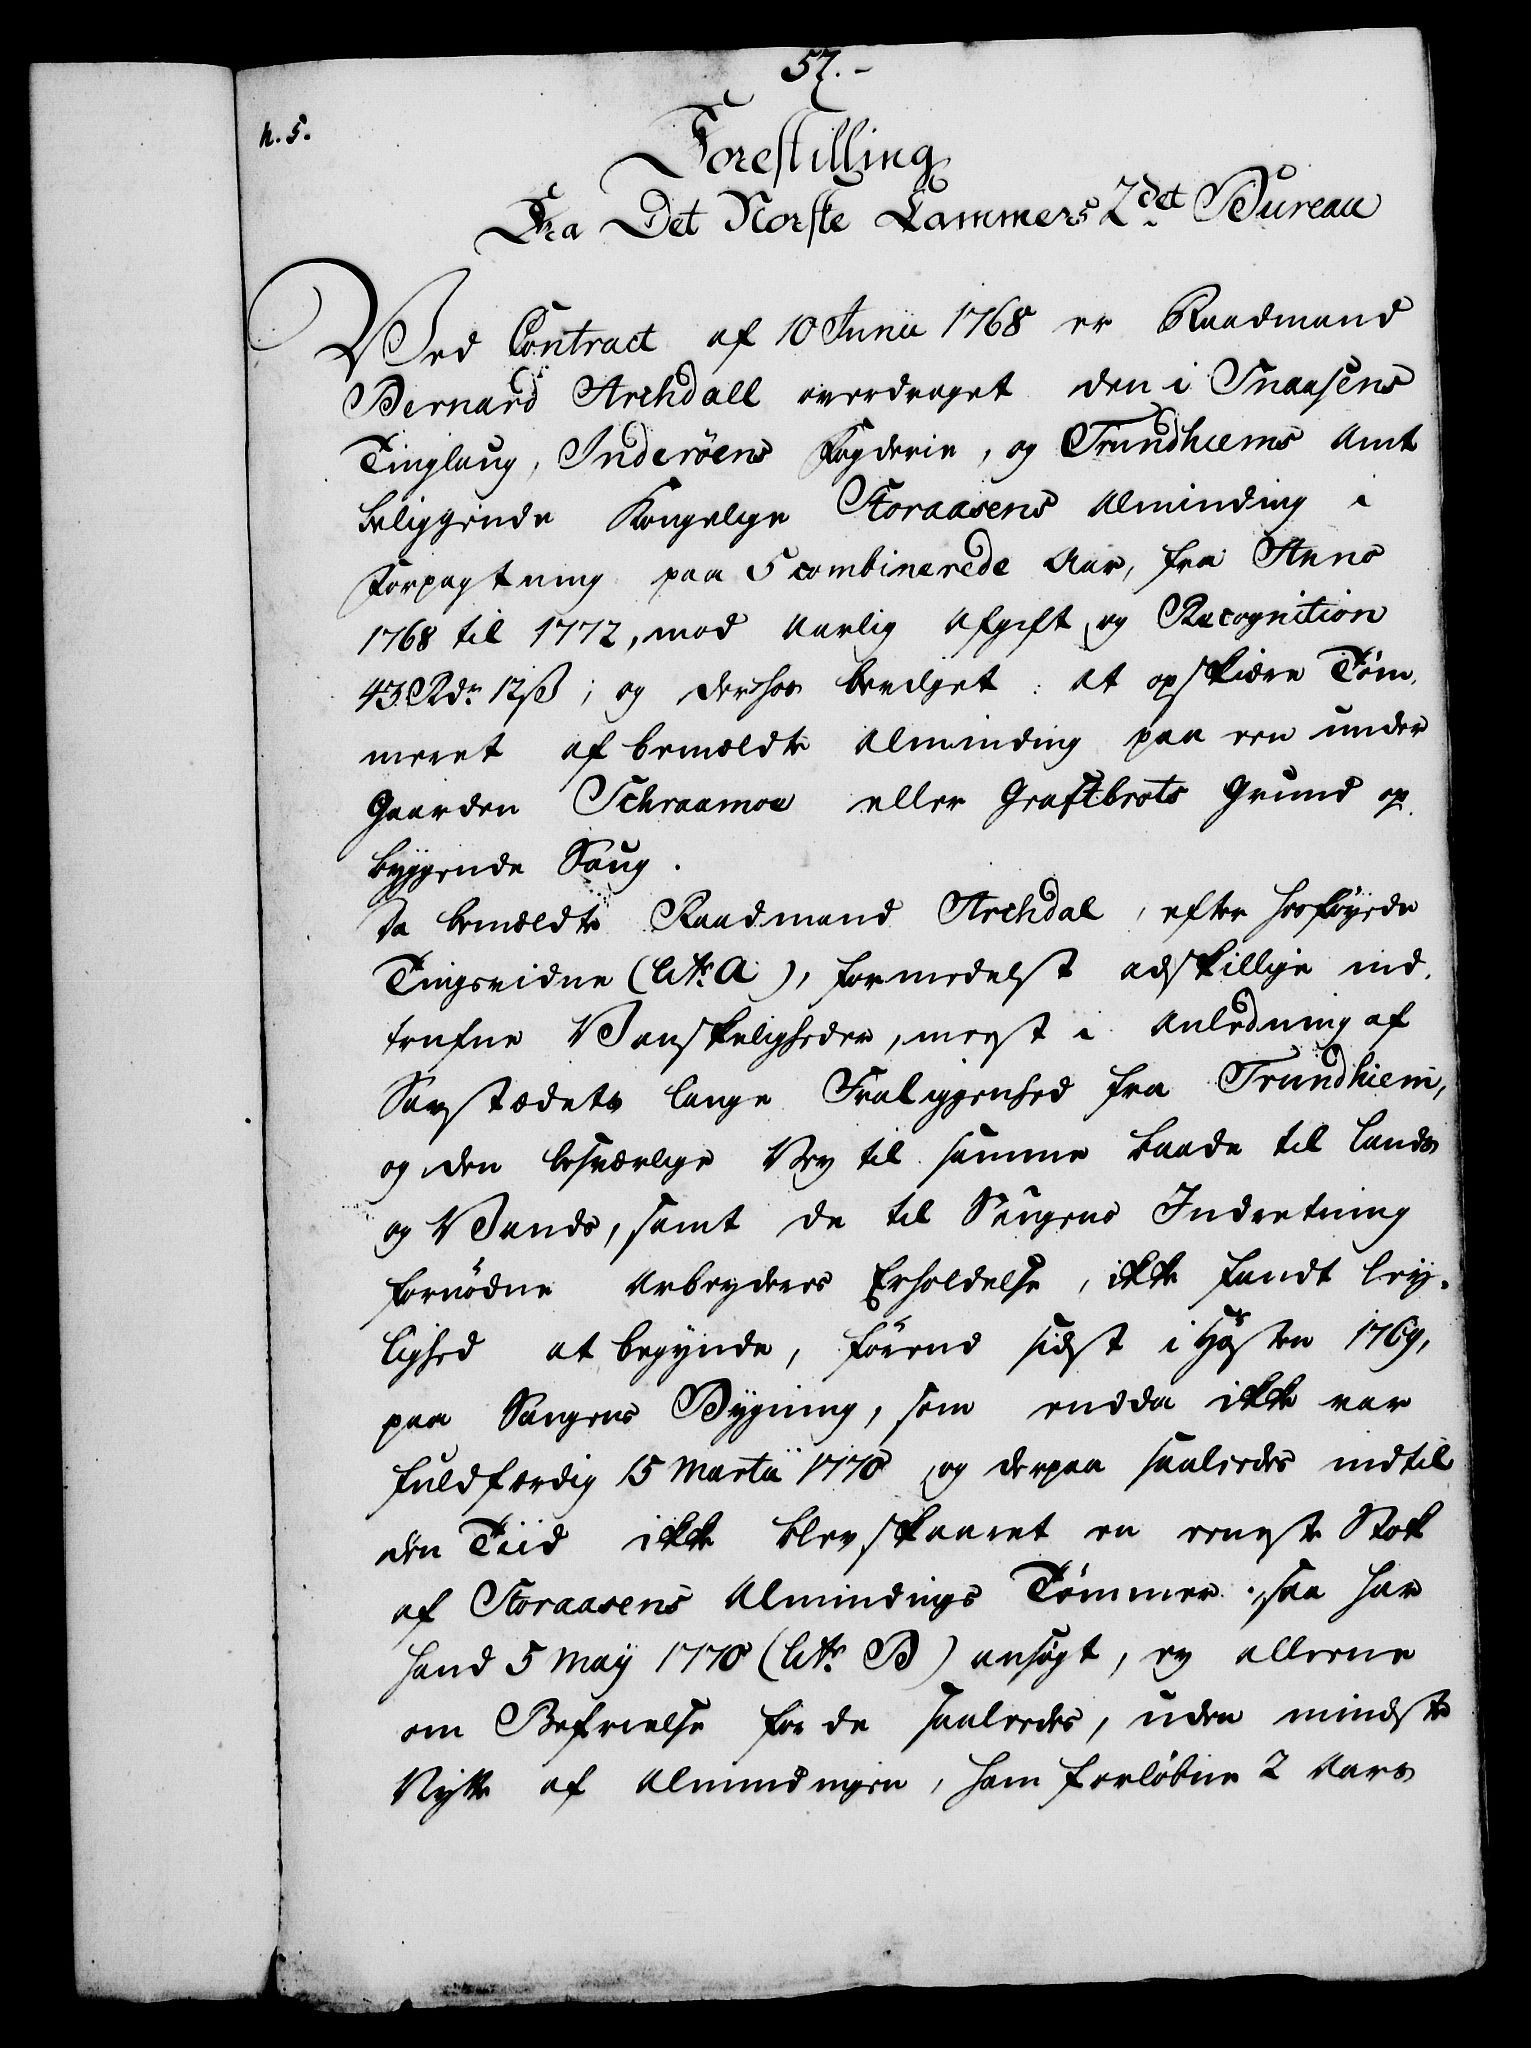 57.-
n. 5.
Forestilling
Fra Det Norske Cammers 2det Bureau
Ved Contract af 10 Junii 1768 er Raadmand
Bernard Archdall overdraget den i Snaasens
Tinglaug, Inderöens Fogderie, og Trundhiems Amt
beliggende Kongelige Storaasens Alminding i
Forpagtning paa 5 combinerede Aar, fra Anno
1768 til 1772, mod aarlig Afgift og Recognition
43 Rdr 12 ß; og derhos bevilget at opskiære Töm-
meret af bemældte Alminding paa een under
Gaarden Schraamoe eller Graftbrots Grund op-
byggende Saug.
Da bemældte Raadmand Archdal, efter hosföyede
Tingsvidne (litr. A), formedelst adskillige ind-
trufne Vanskeligheder, meest i Anledning af
Savstædets lange Fraliggenhed fra Trundhiem,
og den besværlige Vey til samme baade til Lands
og Vands, samt de til Saugens Indretning
fornödne Arbeyderes Erholdelse, ikke fandt Ley-
lighed at begynde, förend sidst i Hösten 1769,
paa Saugens Bygning, som endda ikke var
fuldfærdig 15 Martii 1770 og derpaa saaledes indtil
den Tiid ikke blev skaaret en eeneste Stok
af Storaasens Almindings Tömmer; saa har
hand 5 Maÿ 1770 (litr. B) ansögt, ey alleene
om Befrielse for de saaledes, uden mindste
Nytte af Almindingen, ham forlöbne 2 Aars